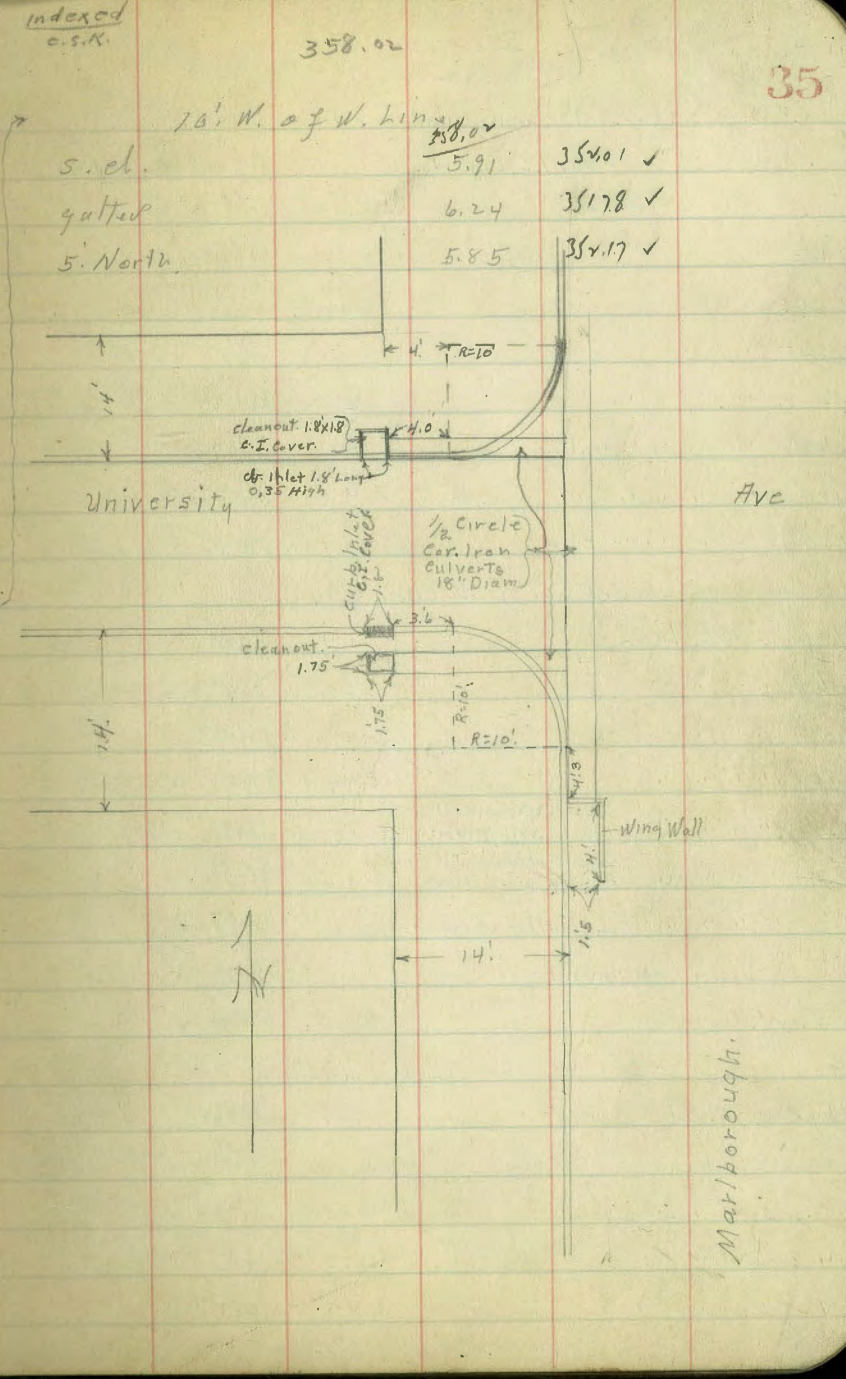 Indexed
C.S.K.
358.02
35
10'. W. of W. Line
358.02
S. el. 5.91 352.01 ✓
gutter 6.24 351.78 ✓
5' North. 5.85 352.17 ✓
4' R=10'
14'
cleanout 1.8'x1.8'
C.I. Cover.
4.0'
cb. Inlet 1.8' Long
0.35 High
University
Ave
1/2 Circle
Cor. Iron
Culverts
18" Diam
Curb Inlet
C.I. Cover
1.6'
3.6
cleanout.
1.75'
1.75'
R=10'
R=10'.
14'.
4'.3"
Wing Wall
4'.
1.5'
14'.
N
Marlborough.